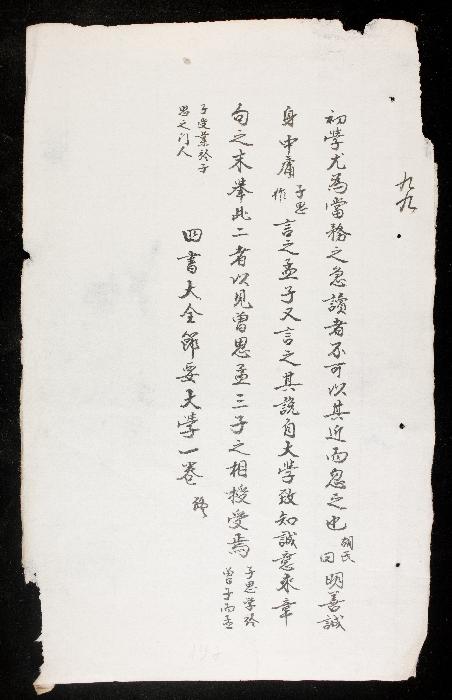 九九
初學尤為當務之急讀者不可以其近而忽之也胡氏曰明善誠
身中庸子思作言之孟子又言之其說自大學致知誠意來章
句之末舉此二者以見曾思孟三子之相授受焉子思學於曾子而孟
子受業於子思之门人
四書大全節要大學一卷終